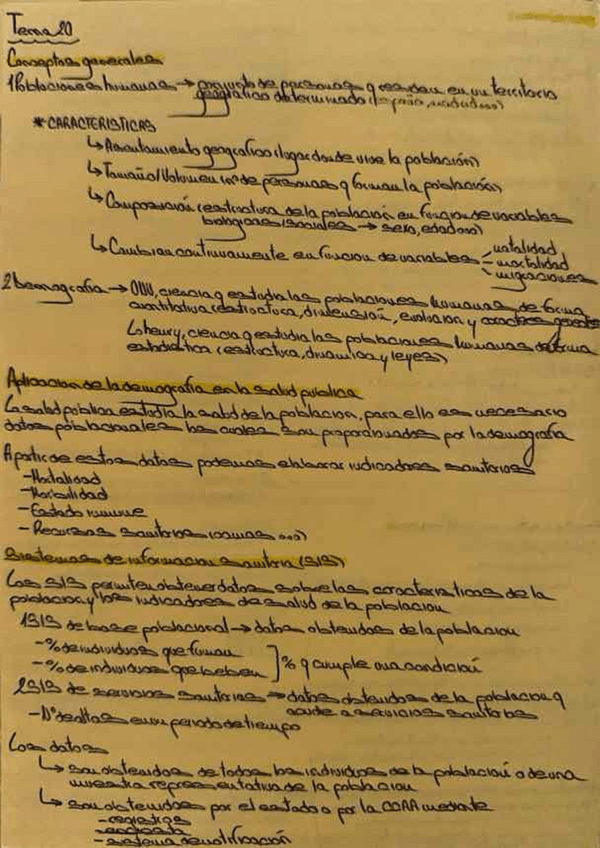 Tema 20
Conceptos generales
1 Poblaciones humanas → conjunto de personas q residen en un territorio
geográfico determinado (España, madrid...)
* CARACTERISTICAS
↳ Asentamiento geográfico (lugar donde vive la población)
↳ Tamaño/Volumen (nº de personas q forman la población)
↳ Composición (estructura de la población en función de variables
biológicas/sociales → sexo, edad...)
↳ Cambian continuamente en función de variables - natalidad
- mortalidad
- migraciones
2 Demografía → ONU, ciencia q estudia las poblaciones humanas de forma
cuantitativa (estructura, dimensión, evolución y caracteres generales
↳ Henry, ciencia q estudia las poblaciones humanas de forma
estadística (estructura, dinámica y leyes)
Aplicación de la demografía en la salud pública
La salud pública estudia la salud de la población, para ello es necesario
datos poblacionales los cuales son proporcionados por la demografía
A partir de estos datos podemos elaborar indicadores sanitarios
- Mortalidad
- Morbilidad
- Estado inmune
- Recursos sanitarios (camas...)
Sistemas de información sanitaria (SIS)
Los SIS permiten obtener datos sobre las características de la
población y los indicadores de salud de la población
1 SIS de base poblacional → datos obtenidos de la población
- % de individuos que fuman
- % de individuos que beben ] % q cumple una condición
2 SIS de servicios sanitarios → datos obtenidos de la población q
acude a servicios sanitarios
- Nº de altas en un periodo de tiempo
Los datos
↳ son obtenidos de todos los individuos de la población o de una
muestra representativa de la población
↳ son obtenidos por el estado o por la CCAA mediante
- registros
- encuesta
- sistema de notificación